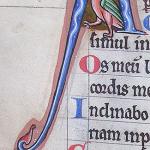 simul in
Os meū l
cordis me
Inclinabo
riam in p